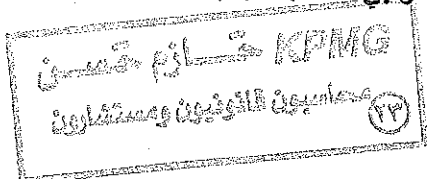 KPMG حازم حسن
محاسبون قانونيون ومستشارون
٢٣